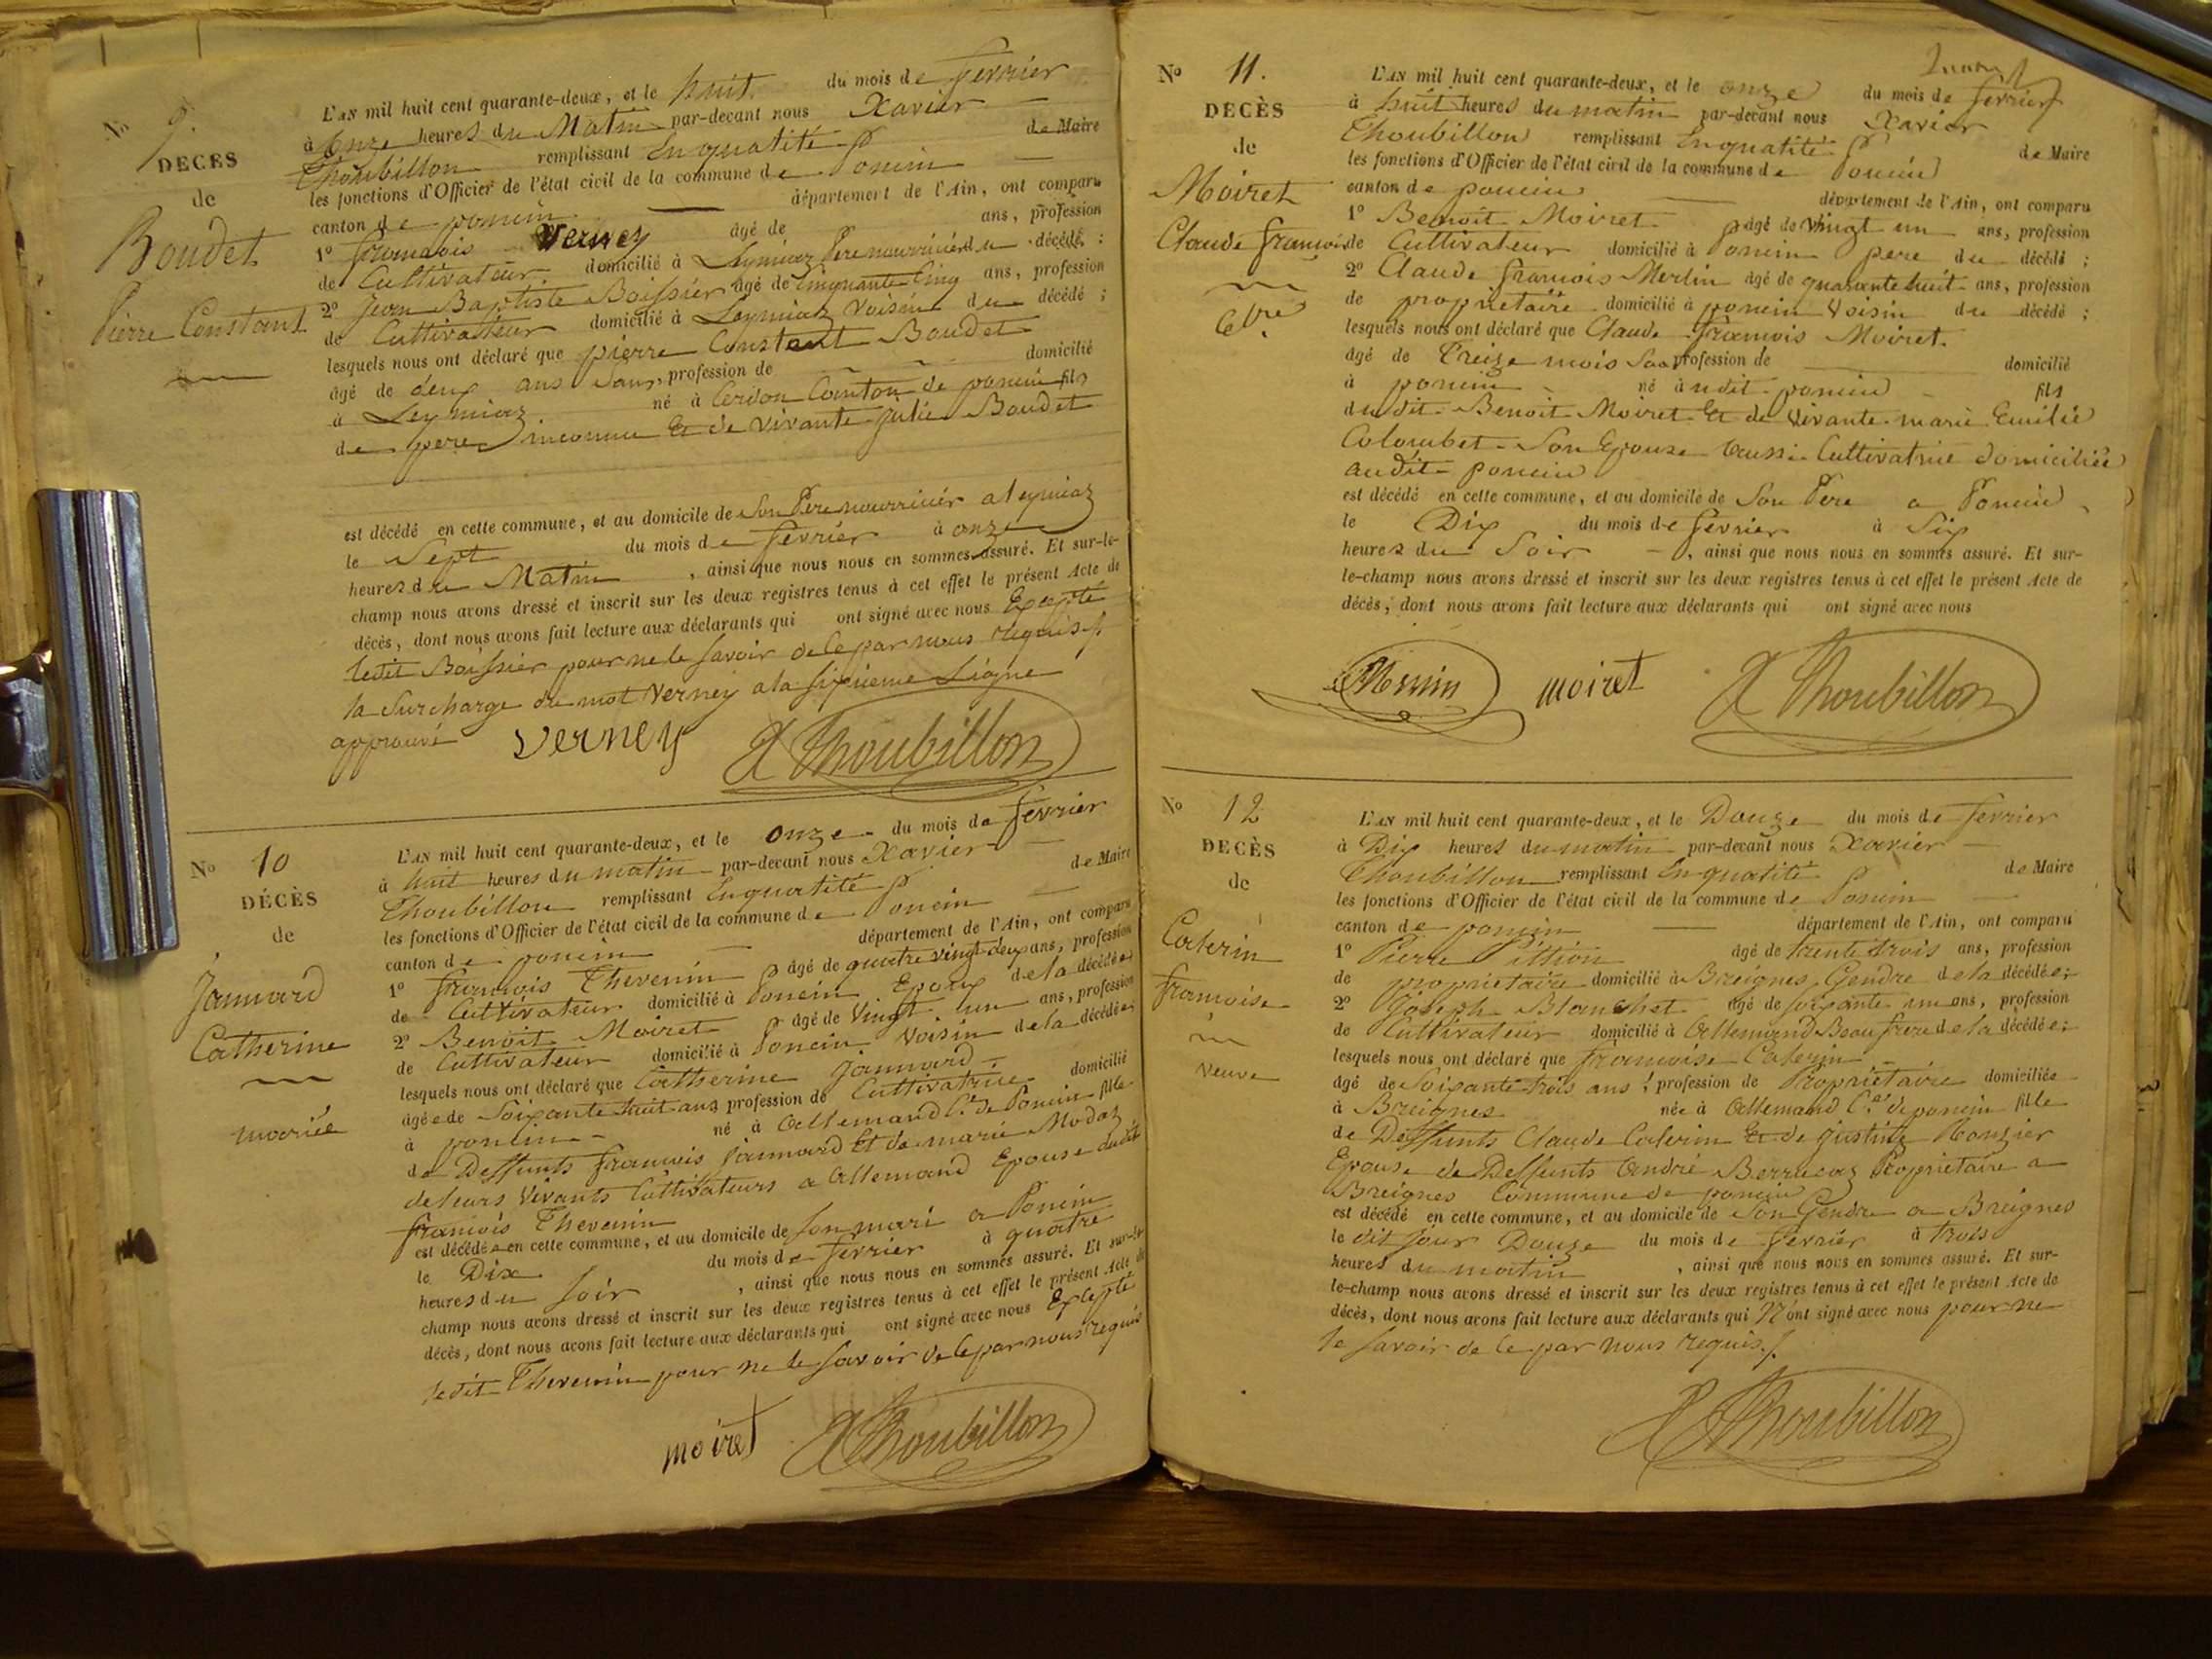 No 9.
DÉCÈS
de
Boudet
Pierre Constant
L'AN mil huit cent quarante-deux, et le huit du mois de fevrier
à Onze heures du Matin par-devant nous Xavier
Thoubillon remplissant En qualité de Maire
les fonctions d'Officier de l'état civil de la commune de Poncin
canton de poncin département de l'Ain, ont comparu
1º françois Verney âgé de ans, profession
de Cultivateur domicilié à Leymiaz Pere nourricier du décédé ;
2º Jean Baptiste Boissier âgé de Cinquante Cinq ans, profession
de Cultivateur domicilié à Leymiaz Voisin du décédé ;
lesquels nous ont déclaré que pierre Constant Boudet
âgé de deux ans Sans profession de domicilié
à Leymiaz né à Cerdon Canton de poncin fils
de pere inconnu Et de vivante julie Boudet
est décédé en cette commune, et au domicile de Son Pere nourricier a leymiaz
le Sept du mois de fevrier à onze
heures du Matin , ainsi que nous nous en sommes assuré. Et sur-le-
champ nous avons dressé et inscrit sur les deux registres tenus à cet effet le présent Acte de
décès, dont nous avons fait lecture aux déclarants qui ont signé avec nous Excepté
ledit Boissier pour ne le savoir de ce par nous requis./.
la Surcharge du mot Verney a la sixieme Ligne
approuvé Verney X Thoubillon
No 10
DÉCÈS
de
Jannard
Catherine
mariée
L'AN mil huit cent quarante-deux, et le onze du mois de fevrier
à huit heures du matin par-devant nous Xavier
Thoubillon remplissant En qualité de Maire
les fonctions d'Officier de l'état civil de la commune de Poncin
canton de poncin département de l'Ain, ont comparu
1º françois Thevenin âgé de quatre vingt deux ans, profession
de Cultivateur domicilié à Poncin Epoux de la décédée
2º Benoit Moiret âgé de Vingt un ans, profession
de Cultivateur domicilié à Poncin Voisin de la décédée
lesquels nous ont déclaré que Catherine Jannard
âgée de Soixante huit ans profession de Cultivatrice domicilié
à poncin né à Allemand Cne de Poncin fille
de Deffunts françois Jannard Et de marie Modaz
de leurs Vivants Cultivateurs a Allemand Epouse dudit
françois Thevenin
est décédée en cette commune, et au domicile de son mari a Poncin
le Dix du mois de fevrier à quatre
heures du soir , ainsi que nous nous en sommes assuré. Et sur-le
champ nous avons dressé et inscrit sur les deux registres tenus à cet effet le présent Acte de
décès, dont nous avons fait lecture aux déclarants qui ont signé avec nous Excepté
ledit Thevenin pour ne le savoir de ce par nous requis
moiret X Thoubillon
No 11.
DÉCÈS
de
Moiret
Claude françois
L'AN mil huit cent quarante-deux, et le onze du mois de fevrier
à huit heures du matin par-devant nous Xavier
Thoubillon remplissant En qualité de Maire
les fonctions d'Officier de l'état civil de la commune de Poncin
canton de poncin département de l'Ain, ont comparu
1º Benoit Moiret âgé de vingt un ans, profession
de Cultivateur domicilié à Poncin pere du décédé ;
2º Claude françois Merlin âgé de quarante huit ans, profession
de proprietaire domicilié à poncin Voisin du décédé ;
lesquels nous ont déclaré que Claude françois Moiret
âgé de Treize mois Sans profession de domicilié
à poncin né audit poncin fils
dudit Benoit Moiret Et de Vivante marie Emilie
Colombet Son Epouse aussi Cultivatrice domiciliée
audit poncin
est décédé en cette commune, et au domicile de Son Pere a Poncin
le Dix du mois de fevrier à Six
heures du Soir , ainsi que nous nous en sommes assuré. Et sur-
le-champ nous avons dressé et inscrit sur les deux registres tenus à cet effet le présent Acte de
décès, dont nous avons fait lecture aux déclarants qui ont signé avec nous
moiret X Thoubillon
No 12
DÉCÈS
de
Caterin
françoise
veuve
L'AN mil huit cent quarante-deux, et le Douze du mois de fevrier
à Dix heures du matin par-devant nous Xavier
Thoubillon remplissant En qualité de Maire
les fonctions d'Officier de l'état civil de la commune de Poncin
canton de poncin département de l'Ain, ont comparu
1º Pierre Pittion âgé de trente trois ans, profession
de proprietaire domicilié à Breignes Gendre de la décédée ;
2º Joseph Blanchet âgé de soixante un ans, profession
de Cultivateur domicilié à Allemand Beau frere de la décédée ;
lesquels nous ont déclaré que françoise Caterin
âgé de Soixante trois ans, profession de Proprietaire domiciliée
à Breignes née à Allemand Cne de poncin fille
de Deffunts Claude Caterin Et de justine Rongier
Epouse de Deffunts André Berrucaz Proprietaire a
Breignes Commune de poncin
est décédé en cette commune, et au domicile de Son Gendre a Breignes
le dit jour Douze du mois de fevrier à trois
heures du matin , ainsi que nous nous en sommes assuré. Et sur-
le-champ nous avons dressé et inscrit sur les deux registres tenus à cet effet le présent Acte de
décès, dont nous avons fait lecture aux déclarants qui N'ont signé avec nous pour ne
le savoir de ce par nous requis./.
X Thoubillon